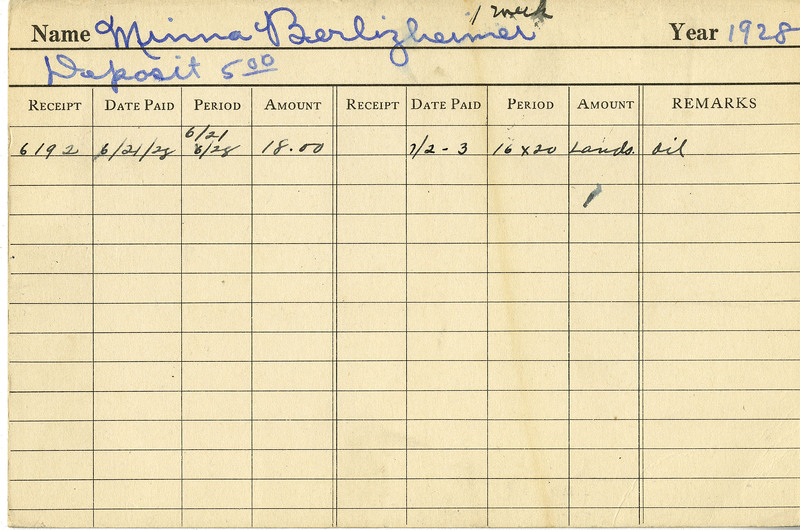 1 week
Name Minna Berlizheimer Year 1928
Deposit 5.00
RECEIPT DATE PAID PERIOD AMOUNT RECEIPT DATE PAID PERIOD AMOUNT REMARKS
6/21
6192 6/21/28 6/28 18.00 7/2-3 16x20 Lands. oil